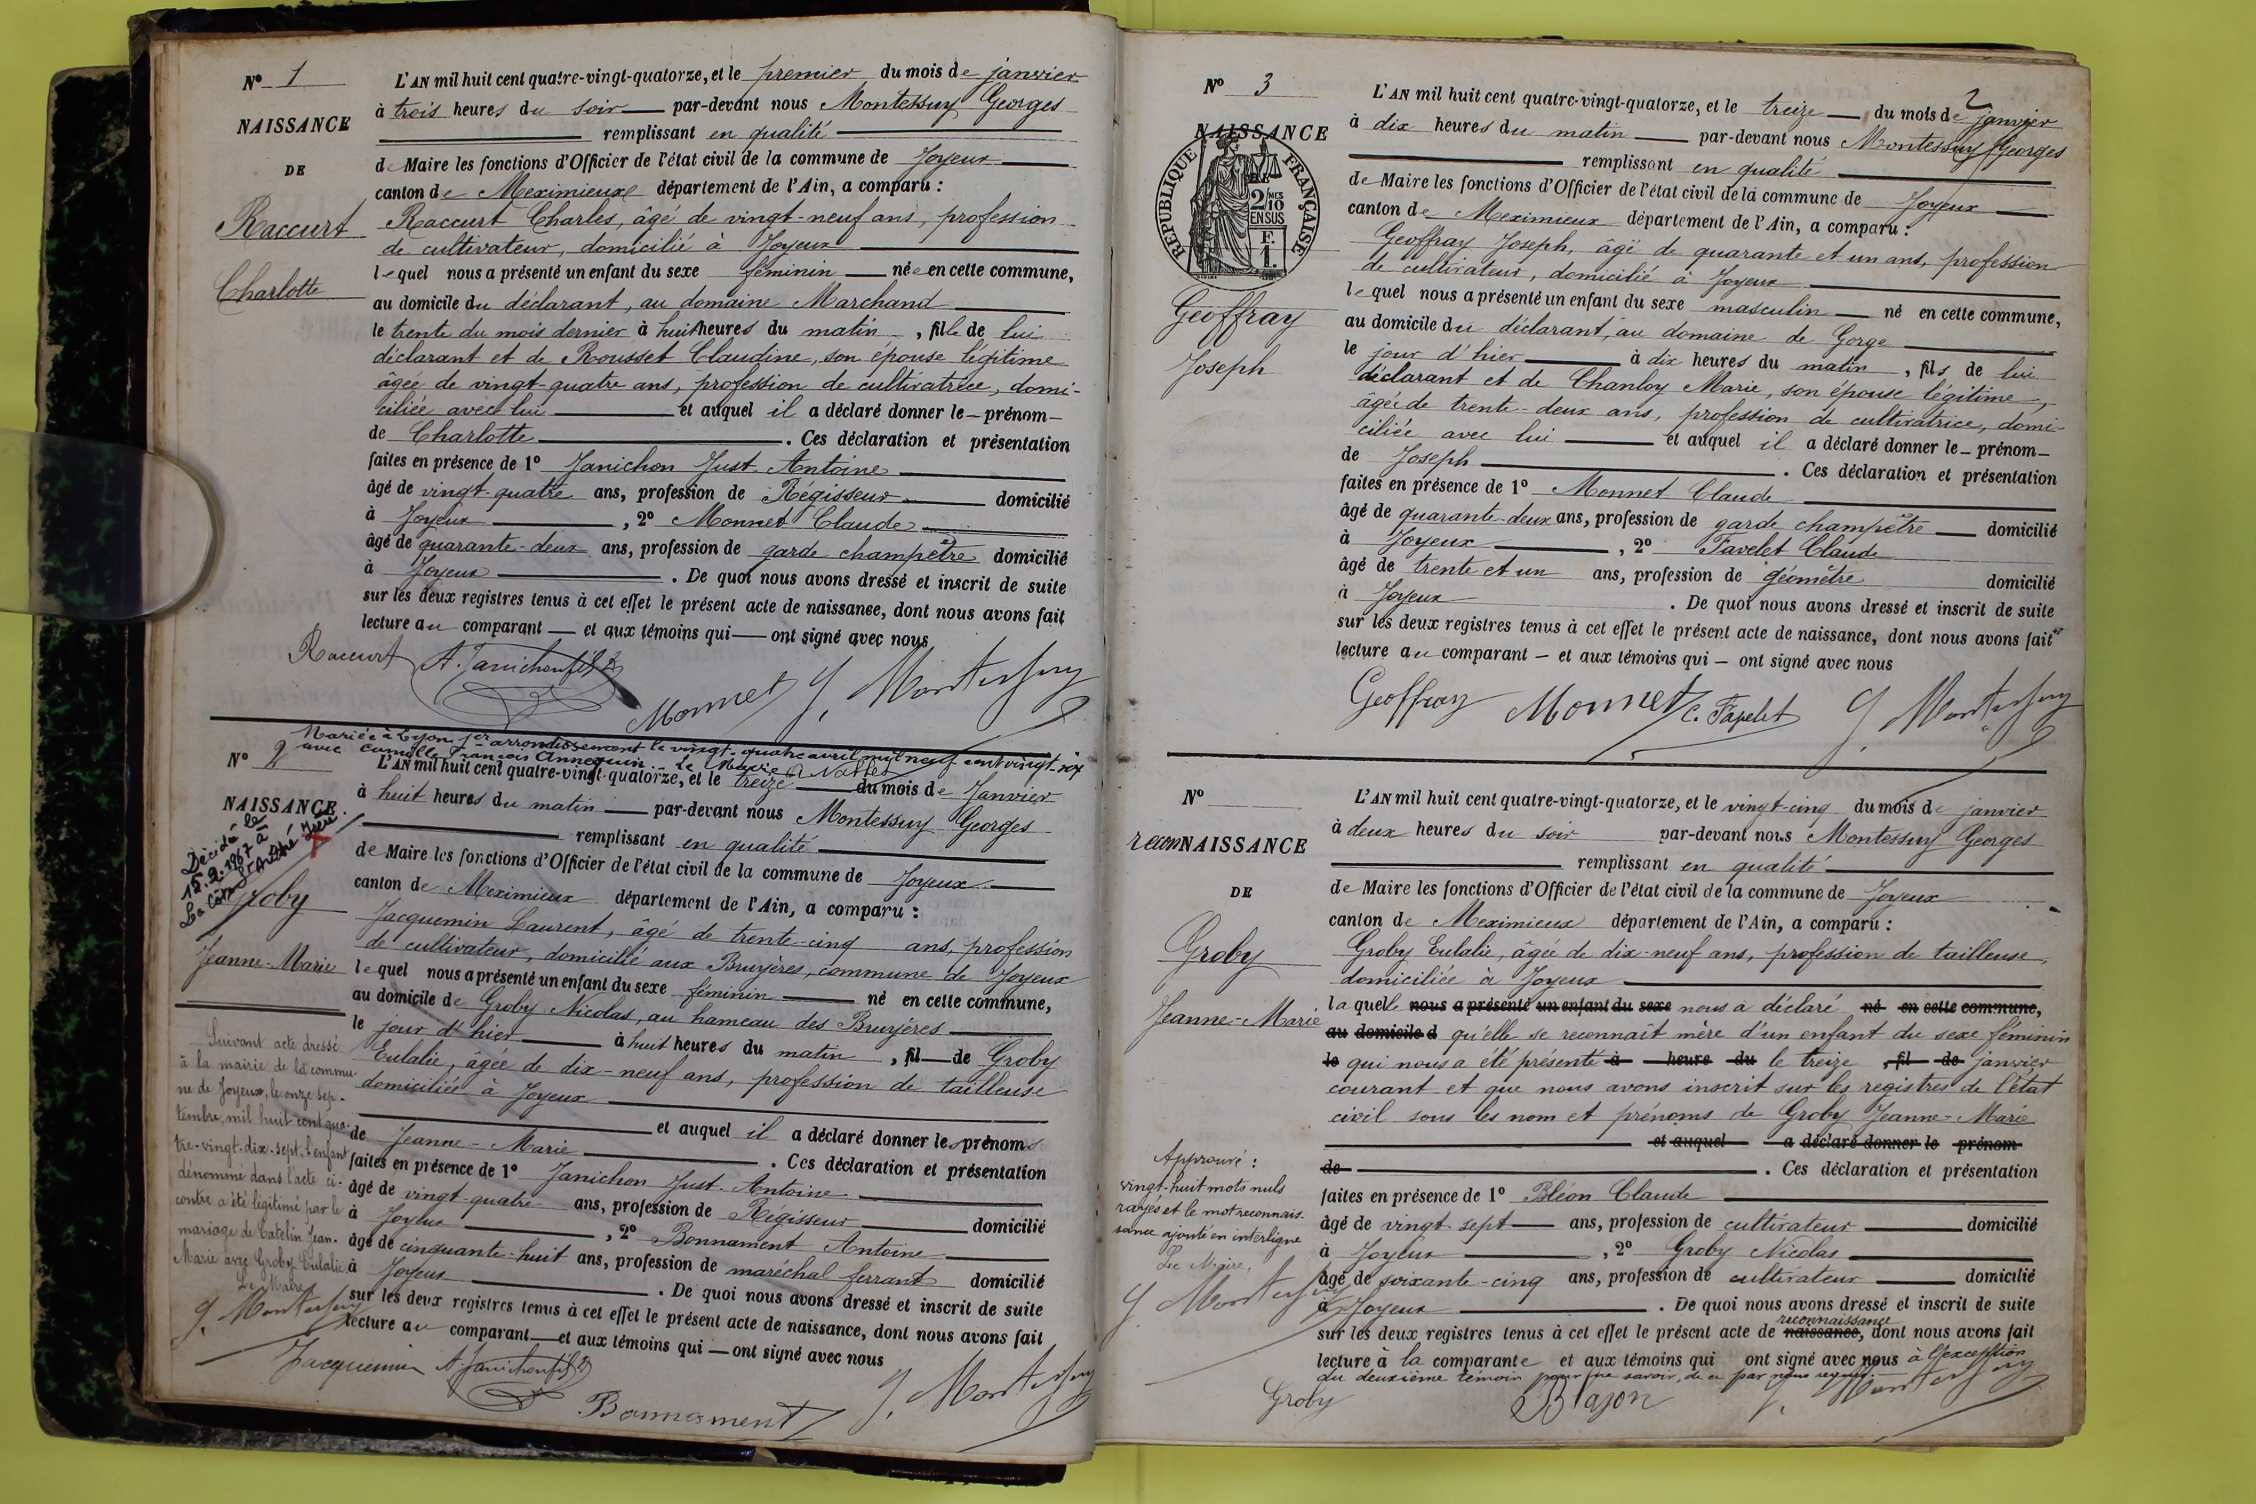 N° 1
NAISSANCE
DE
Raccurt
Charlotte
L'AN mil huit cent quatre-vingt-quatorze, et le premier du mois de janvier
à trois heures du soir par-devant nous Montessuy Georges
remplissant en qualité
de Maire les fonctions d'Officier de l'état civil de la commune de Joyeux
canton de Meximieux département de l'Ain, a comparu :
Raccurt Charles, âgé de vingt-neuf ans, profession
de cultivateur, domicilié à Joyeux
lequel nous a présenté un enfant du sexe féminin née en cette commune,
au domicile du déclarant, au domaine Marchand
le trente du mois dernier à huit heures du matin, fille de lui
déclarant et de Rousset Claudine, son épouse légitime
âgée de vingt-quatre ans, profession de cultivatrice, domi-
ciliée avec lui et auquel il a déclaré donner le prénom
de Charlotte . Ces déclaration et présentation
faites en présence de 1° Janichon Just Antoine
âgé de vingt-quatre ans, profession de Régisseur domicilié
à Joyeux , 2° Monnet Claude
âgé de quarante-deux ans, profession de garde champêtre domicilié
à Joyeux . De quoi nous avons dressé et inscrit de suite
sur les deux registres tenus à cet effet le présent acte de naissance, dont nous avons fait
lecture au comparant et aux témoins qui ont signé avec nous
Raccurt A. Janichon fils
Monnet G. Montessuy
Mariée à Lyon 1er arrondissement le vingt-quatre avril mil neuf cent vingt-six
avec Camille François Annequin. Le Maire
N° 2
NAISSANCE
Décédé le
15.2.1967 à
La Côte St André Isère
Groby
Jeanne-Marie
L'AN mil huit cent quatre-vingt-quatorze, et le treize du mois de Janvier
à huit heures du matin par-devant nous Montessuy Georges
remplissant en qualité
de Maire les fonctions d'Officier de l'état civil de la commune de Joyeux
canton de Meximieux département de l'Ain, a comparu :
Jacquemin Laurent, âgé de trente-cinq ans, profession
de cultivateur, domicilié aux Bruyères, commune de Joyeux
lequel nous a présenté un enfant du sexe féminin né en cette commune,
au domicile de Groby Nicolas, au hameau des Bruyères
le jour d'hier à huit heures du matin, fil de Groby
Eulalie, âgée de dix-neuf ans, profession de tailleuse
domiciliée à Joyeux
et auquel il a déclaré donner les prénoms
de Jeanne-Marie . Ces déclaration et présentation
faites en présence de 1° Janichon Just-Antoine
âgé de vingt-quatre ans, profession de Régisseur domicilié
à Joyeux , 2° Bonnament Antoine
âgé de cinquante-huit ans, profession de maréchal ferrant domicilié
à Joyeux . De quoi nous avons dressé et inscrit de suite
sur les deux registres tenus à cet effet le présent acte de naissance, dont nous avons fait
lecture au comparant et aux témoins qui ont signé avec nous
Jacquemin A. Janichon fils
Bonnament G. Montessuy
Suivant acte dressé
à la mairie de la commu-
ne de Joyeux, le onze sep-
tembre mil huit cent qua-
tre-vingt-dix-sept, l'enfant
dénommé dans l'acte ci-
contre a été légitimé par le
mariage de Catelin Jean-
Marie avec Groby Eulalie
Le Maire
G. Montessuy
2
N° 3
NAISSANCE
RÉPUBLIQUE FRANÇAISE
2/10 MES
EN SUS
F.
1.
Geoffray
Joseph
L'AN mil huit cent quatre-vingt-quatorze, et le treize du mois de janvier
à dix heures du matin par-devant nous Montessuy Georges
remplissant en qualité
de Maire les fonctions d'Officier de l'état civil de la commune de Joyeux
canton de Meximieux département de l'Ain, a comparu :
Geoffray Joseph, âgé de quarante et un ans, profession
de cultivateur, domicilié à Joyeux
lequel nous a présenté un enfant du sexe masculin né en cette commune,
au domicile du déclarant, au domaine de Gorge
le jour d'hier à dix heures du matin, fils de lui
déclarant et de Chanloy Marie, son épouse légitime,
âgée de trente-deux ans, profession de cultivatrice, domi-
ciliée avec lui et auquel il a déclaré donner le prénom
de Joseph . Ces déclaration et présentation
faites en présence de 1° Monnet Claude
âgé de quarante-deux ans, profession de garde champêtre domicilié
à Joyeux , 2° Favelet Claude
âgé de trente et un ans, profession de géomètre domicilié
à Joyeux . De quoi nous avons dressé et inscrit de suite
sur les deux registres tenus à cet effet le présent acte de naissance, dont nous avons fait
lecture au comparant et aux témoins qui ont signé avec nous
Geoffray Monnet C. Favelet G. Montessuy
N°
reconNAISSANCE
DE
Groby
Jeanne-Marie
L'AN mil huit cent quatre-vingt-quatorze, et le vingt-cinq du mois de janvier
à deux heures du soir par-devant nous Montessuy Georges
remplissant en qualité
de Maire les fonctions d'Officier de l'état civil de la commune de Joyeux
canton de Meximieux département de l'Ain, a comparu :
Groby Eulalie, âgée de dix-neuf ans, profession de tailleuse,
domiciliée à Joyeux
laquelle nous a présenté un enfant du sexe nous a déclaré né en cette commune,
au domicile d qu'elle se reconnaît mère d'un enfant du sexe féminin
le qui nous a été présenté à heure du le treize , fil de janvier
courant et que nous avons inscrit sur les registres de l'état
civil sous les nom et prénoms de Groby Jeanne-Marie
et auquel a déclaré donner le prénom
de . Ces déclaration et présentation
faites en présence de 1° Bléon Claude
âgé de vingt-sept ans, profession de cultivateur domicilié
à Joyeux , 2° Groby Nicolas
âgé de soixante-cinq ans, profession de cultivateur domicilié
à Joyeux . De quoi nous avons dressé et inscrit de suite
reconnaissance
sur les deux registres tenus à cet effet le présent acte de naissance, dont nous avons fait
lecture à la comparante et aux témoins qui ont signé avec nous à l'exception
du deuxième témoin pour ne savoir, de ce par nous requis.
Groby G. Montessuy
Approuvé :
vingt-huit mots nuls
rayés et le mot reconnais-
sance ajouté en interligne
Le Maire,
G. Montessuy